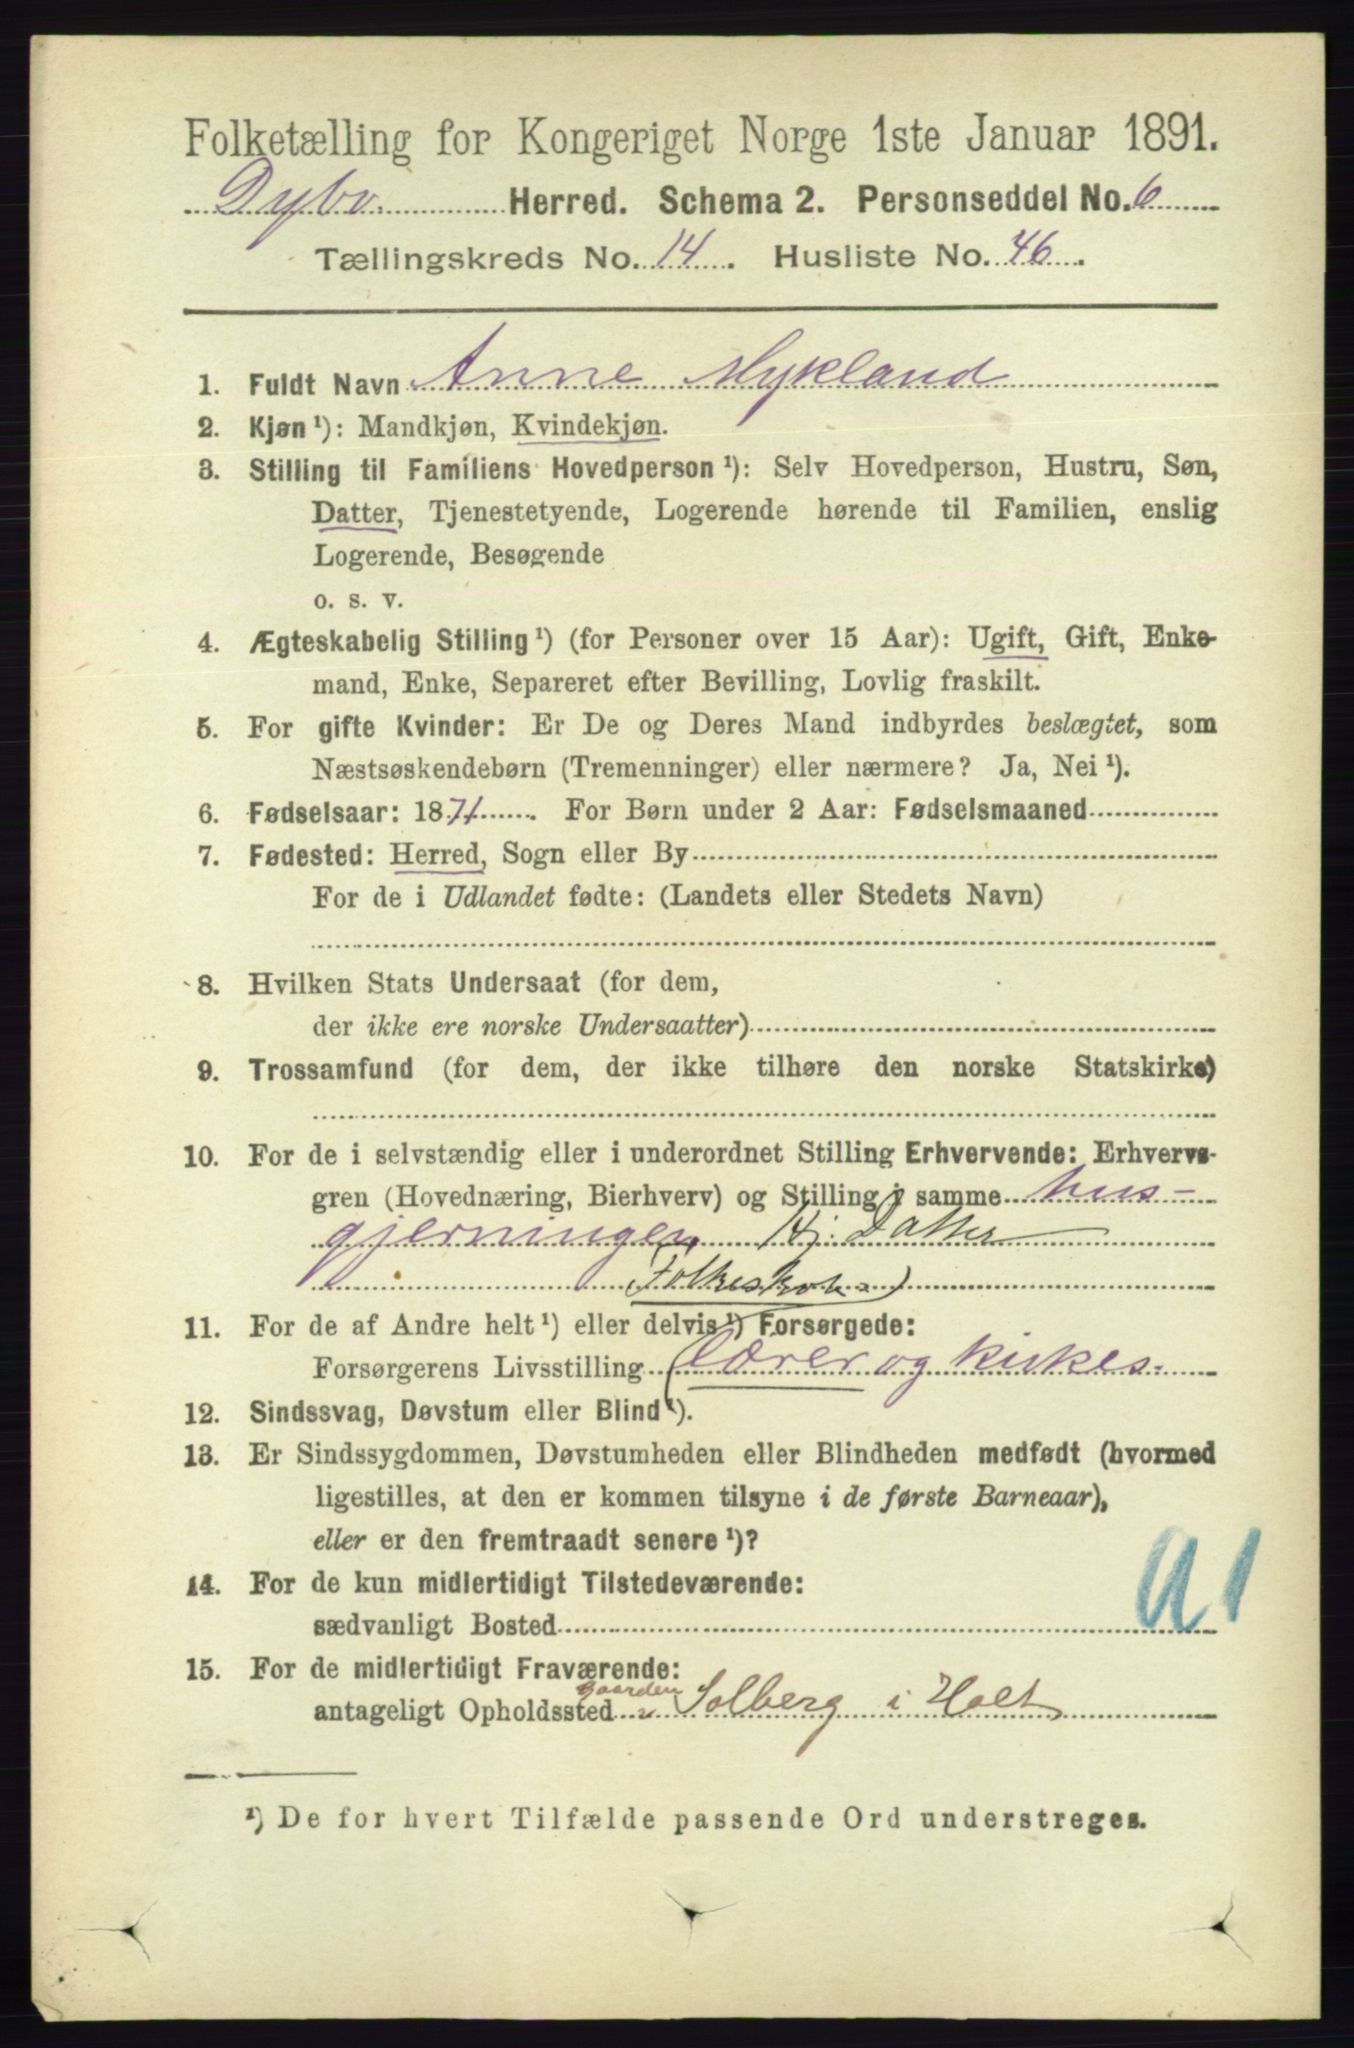 Folketælling for Kongeriget Norge 1ste Januar 1891.
Dybv. Herred. Schema 2. Personseddel No. 6
Tællingskreds No. 14. Husliste No. 46.
1. Fuldt Navn Anne Mykland
2. Kjøn ¹): Mandkjøn, Kvindekjøn.
3. Stilling til Familiens Hovedperson ¹): Selv Hovedperson, Hustru, Søn,
Datter, Tjenestetyende, Logerende hørende til Familien, enslig
Logerende, Besøgende
o. s. v.
4. Ægteskabelig Stilling ¹) (for Personer over 15 Aar): Ugift, Gift, Enke-
mand, Enke, Separeret efter Bevilling, Lovlig fraskilt.
5. For gifte Kvinder: Er De og Deres Mand indbyrdes beslægtet, som
Næstsøskendebørn (Tremenninger) eller nærmere? Ja, Nei ¹).
6. Fødselsaar: 1871. For Børn under 2 Aar: Fødselsmaaned
7. Fødested: Herred, Sogn eller By
For de i Udlandet fødte: (Landets eller Stedets Navn)
8. Hvilken Stats Undersaat (for dem,
der ikke ere norske Undersaatter)
9. Trossamfund (for dem, der ikke tilhøre den norske Statskirke)
10. For de i selvstændig eller i underordnet Stilling Erhvervende: Erhvervs-
gren (Hovednæring, Bierhverv) og Stilling i samme hus-
gjerningen Hj. Datter
Folkeskole)
11. For de af Andre helt ¹) eller delvis ¹) Forsørgede:
Forsørgerens Livsstilling (lærer og kirkes.
12. Sindssvag, Døvstum eller Blind ¹).
13. Er Sindssygdommen, Døvstumheden eller Blindheden medfødt (hvormed
ligestilles, at den er kommen tilsyne i de første Barneaar),
eller er den fremtraadt senere ¹)?
14. For de kun midlertidigt Tilstedeværende:
sædvanligt Bosted
a1
15. For de midlertidigt Fraværende:
antageligt Opholdssted gaarden Solberg i Holt
¹) De for hvert Tilfælde passende Ord understreges.